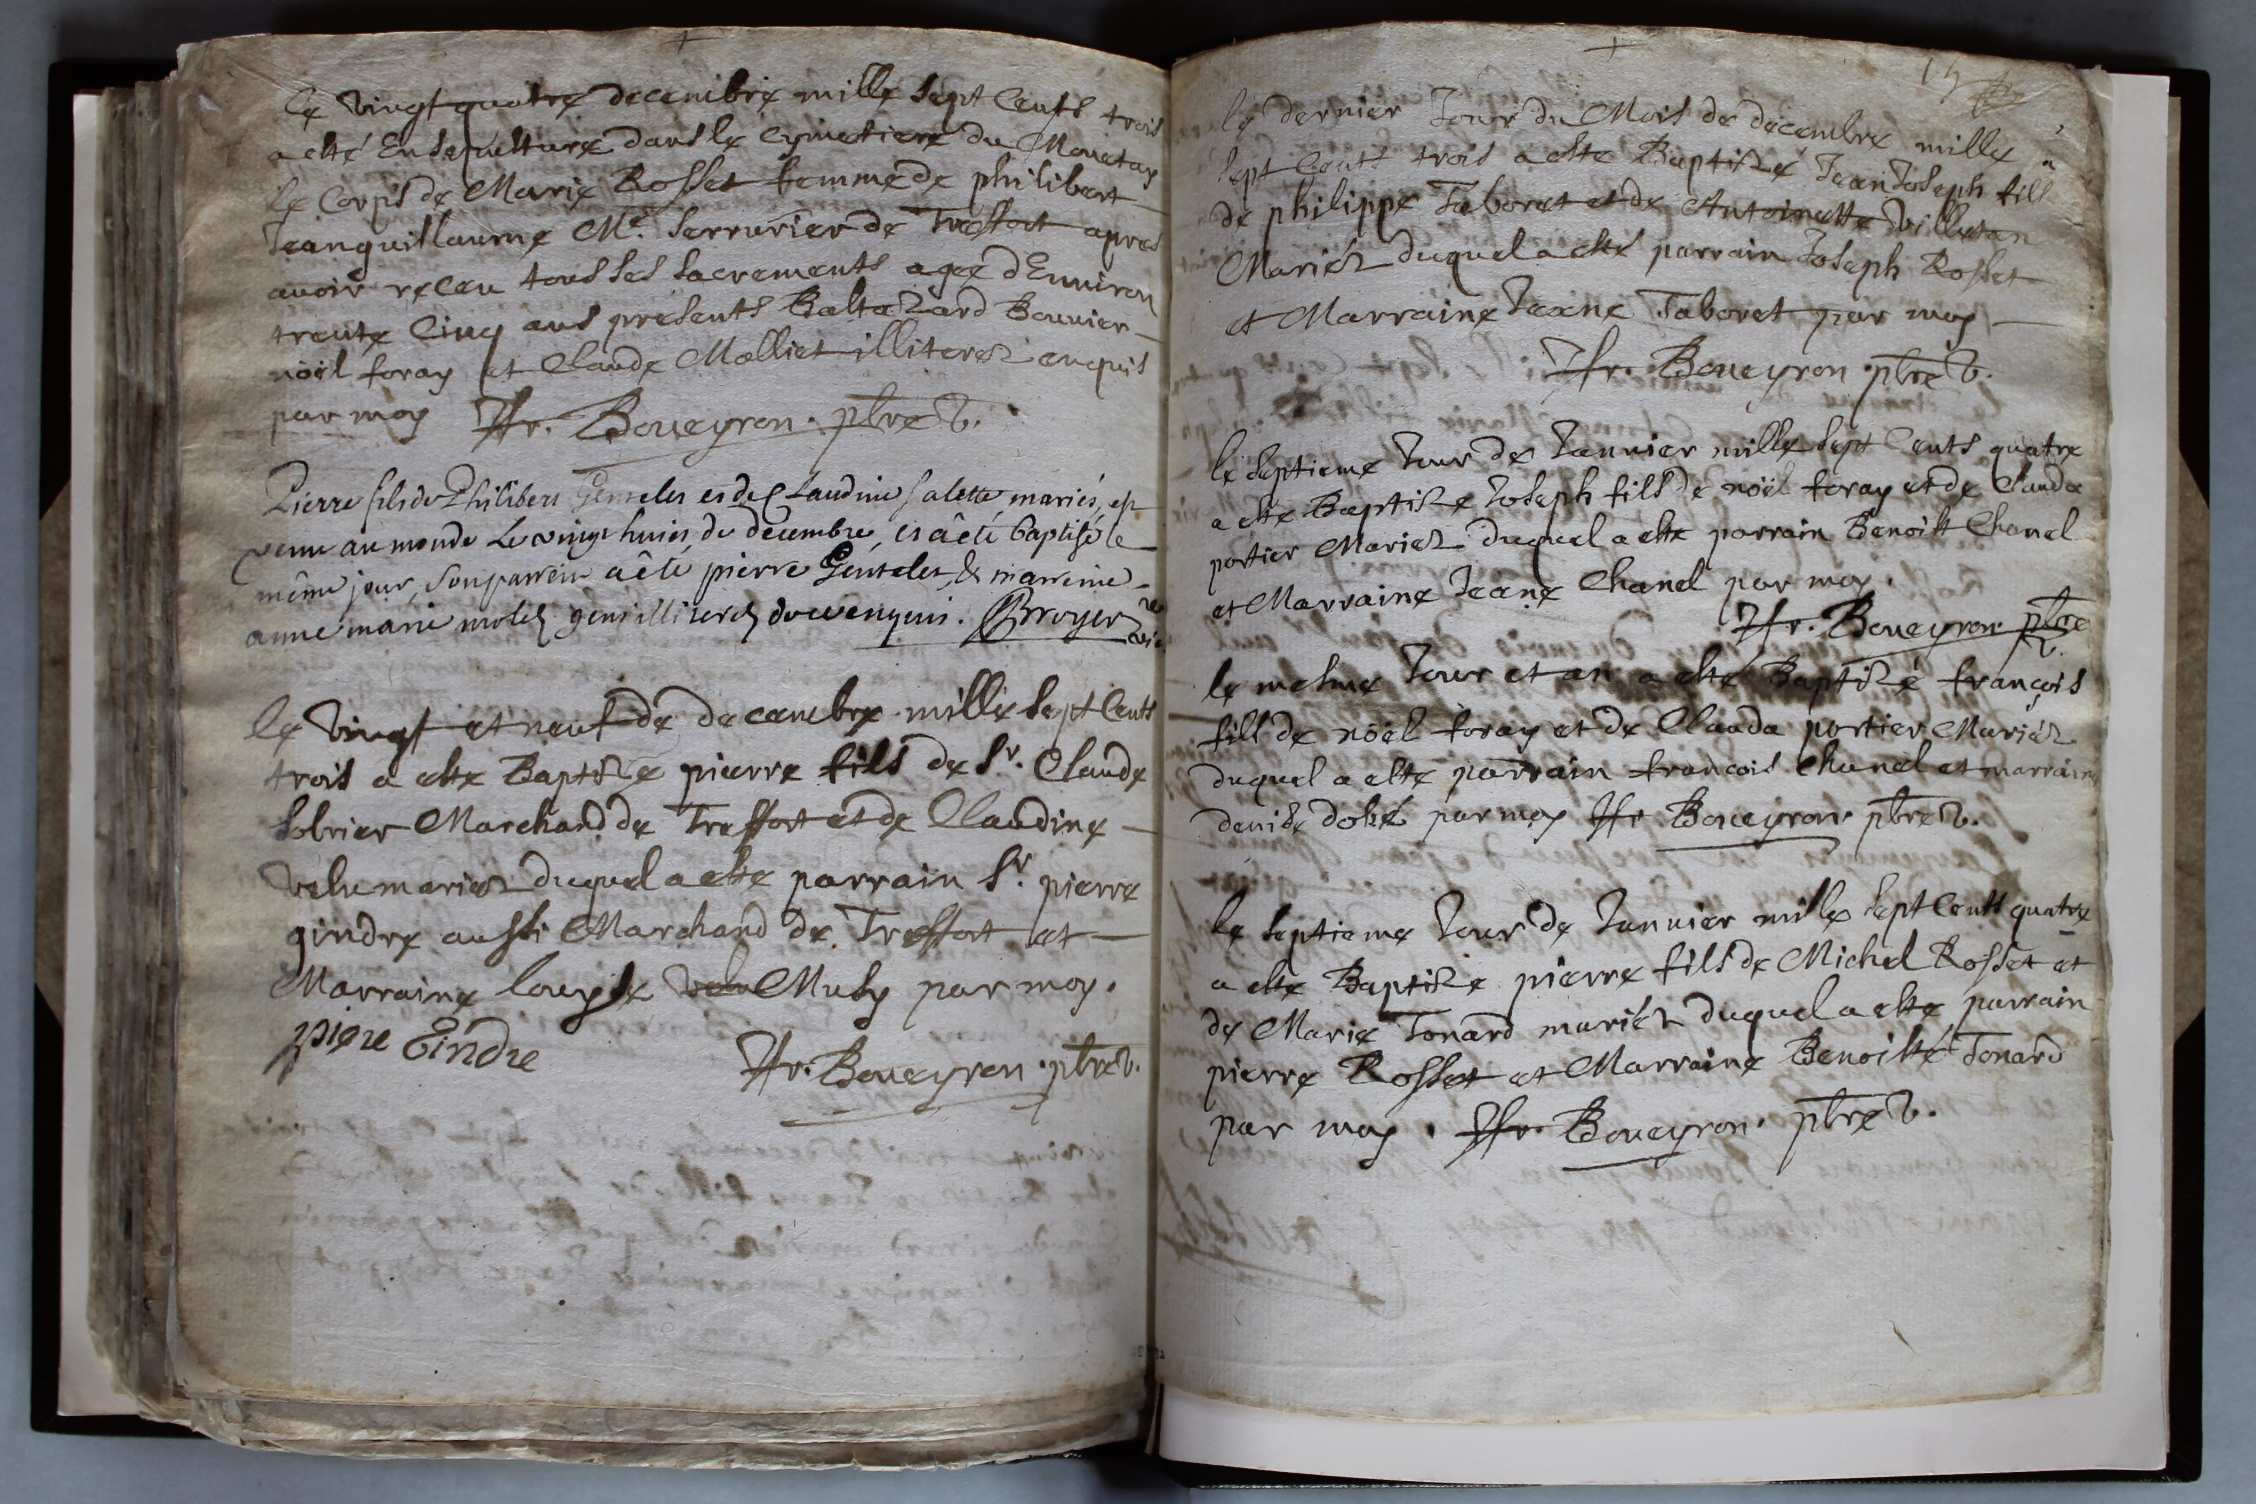 Le vingt quatre decembre mille sept Cents trois
a esté Ensepulturé dans le Cymetiere du Monetay
le Corps de Marie Rosset femme de philibert
Jeanguillaume Me. Serrurier de Treffort apres
avoir receu tous ses sacrements agée d'Environ
trente Cinq ans presents Baltazard Bouvier
nöel foray et Claude Molliet illiterez enquis
par moy Fr. Boueyron. ptre v.
Pierre fils de Philibert Genselet et de Claudine Salette mariés, est
venu au monde Le vingt huit de decembre, et a êté baptisé le
même jour, son parrein a êté pierre Genselet, & marreine
anne marie molez gens illiterez de ce enquis. Broyer
Le vingt et neuf de decembre mille sept Cents
trois a esté Baptizé pierre fils de Sr. Claude
Sobrier Marchand de Treffort et de Claudine
velu mariez duquel a esté parrain Sr. pierre
gindre aussi Marchand de Treffort et
Marraine louyse Musy par moy.
piere Gindre
Fr. Boueyron. ptre v.
le dernier Jour du Mois de decembre mille
sept Cents trois a esté Baptizé Jean Joseph fils
de philippe Taboret et de Antoinette villetan
Mariéz duquel a esté parrain Joseph Rosset
et Marraine Jeane Taboret par moy
Fr. Boueyron. ptre v.
le septieme Jour de Janvier mille sept Cents quatre
a esté Baptizé Joseph fils de nöel foray et de Clauda
portier Mariez duquel a esté parrain Benoist Chanel
et Marraine Jeane Chanel par moy.
Fr. Boueyron. ptre
v.
le mesme Jour et an a esté Baptizé françois
fils de nöel foray et de Clauda portier Mariéz
duquel a esté parrain françois Chanel et marraine
denise par moy Fr. Boueyron. ptre v.
le septieme Jour de Janvier mille sept Cents quatre
a esté Baptizé pierre fils de Michel Rosset et
de Marie Tonard mariéz duquel a esté parrain
pierre Rosset et Marraine Benoiste Tonard
par moy. Fr. Boueyron. ptre v.